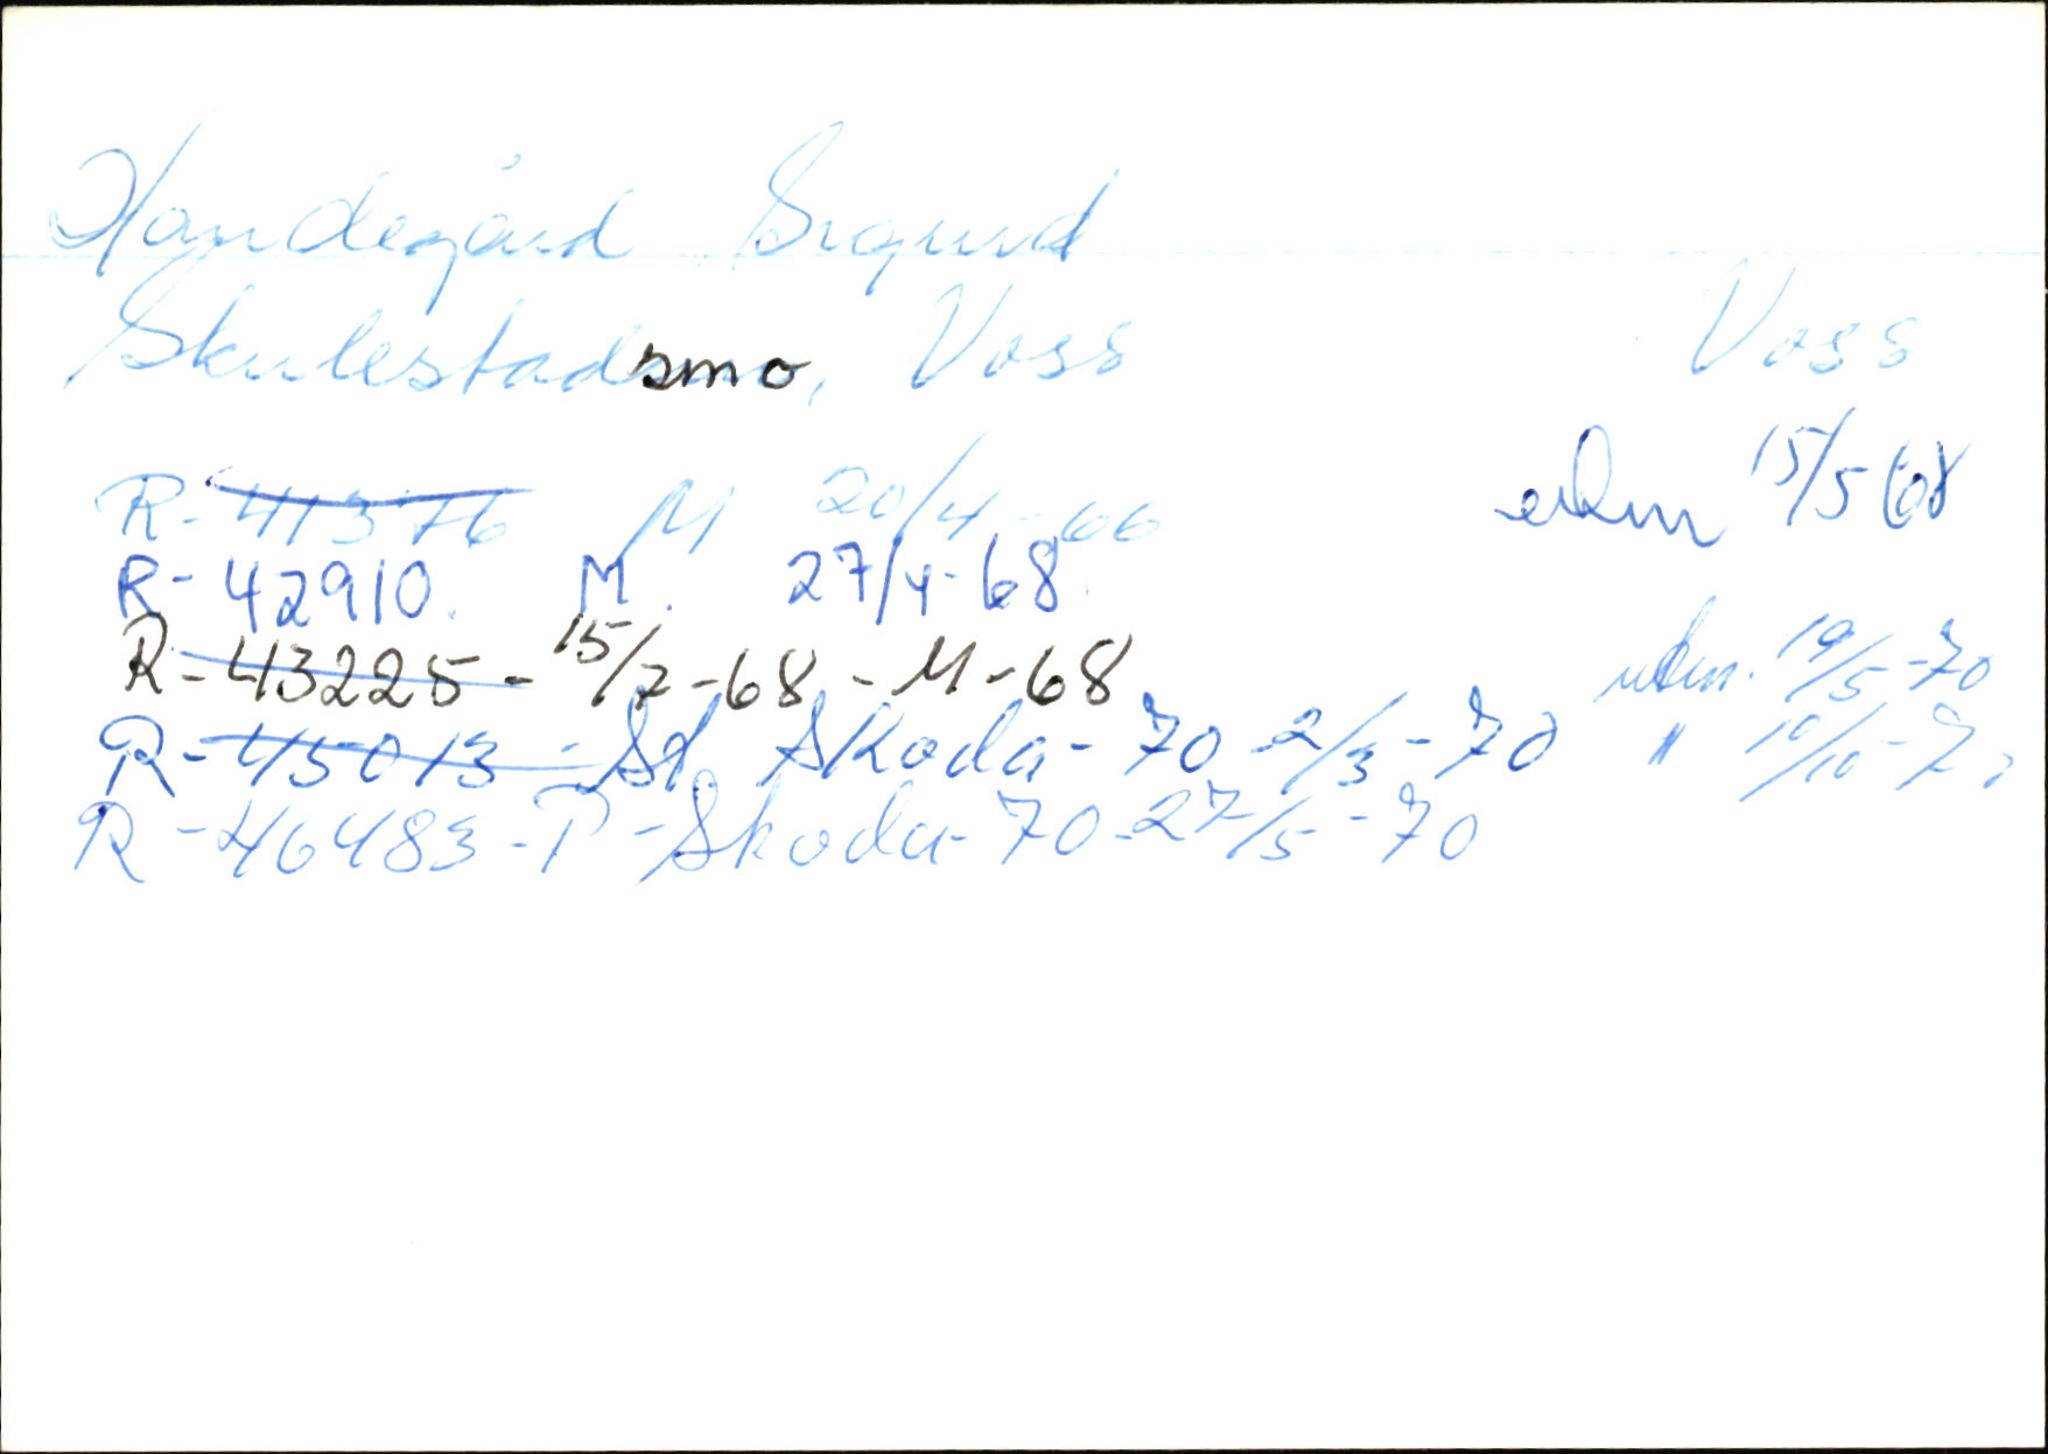 Handegård Sigurd
Skulestadsmo, Voss Voss
R-41376 M 20/4-66 utm 15/5 68
R-42910. M. 27/4-68.
R-43225 - 15/7-68 - M-68 utm. 19/5-70
R-45013 - St Skoda-70-2/3-70 " 10/10-70
R-46483-P-Skoda-70-27/5-70